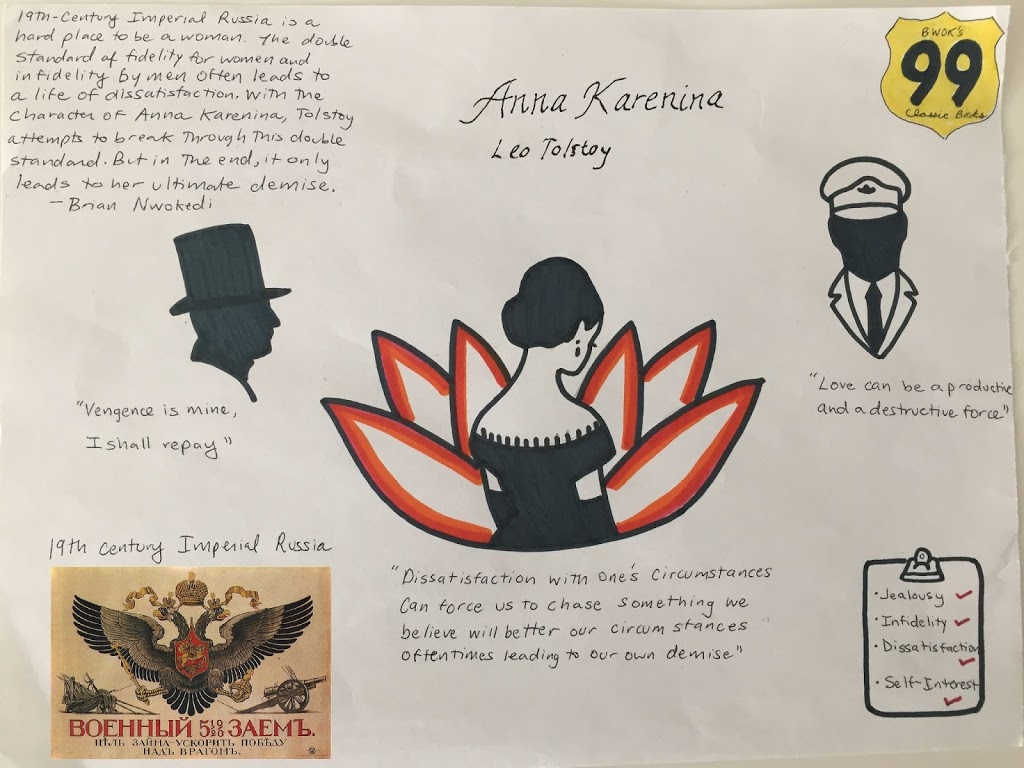 19th-Century Imperial Russia is a
hard place to be a woman. The double
standard of fidelity for women and
infidelity by men often leads to
a life of dissatisfaction. With the
character of Anna Karenina, Tolstoy
attempts to break through this double
standard. But in the end, it only
leads to her ultimate demise.
- Brian Nwokedi
Anna Karenina
Leo Tolstoy
BWOK'S
99
Classic Books
"Vengence is mine,
I shall repay"
"Love can be a productive
and a destructive force"
19th century Imperial Russia
ВОЕННЫЙ 5 1/2 % ЗАЕМЪ.
ЦѢЛЬ ЗАЙМА-УСКОРИТЬ ПОБѢДУ
НАДЪ ВРАГОМЪ.
"Dissatisfaction with one's circumstances
can force us to chase something we
believe will better our circumstances
oftentimes leading to our own demise"
• Jealousy ✓
• Infidelity ✓
• Dissatisfaction
✓
• Self-Interest
✓